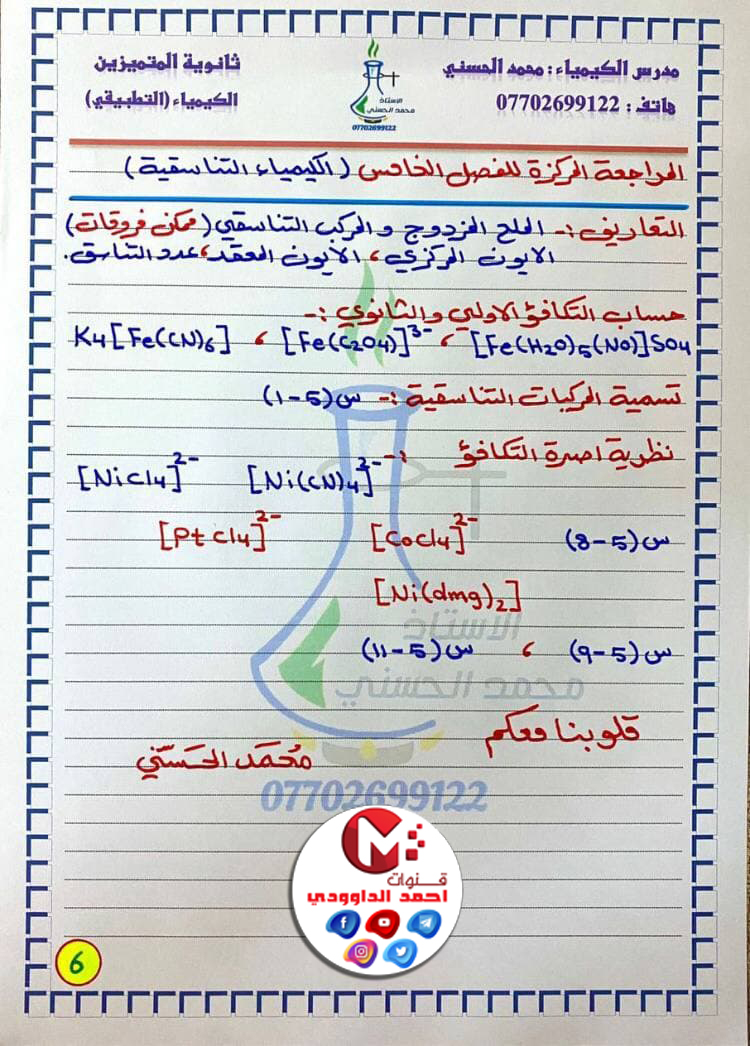 مدرس الكيمياء : محمد الحسني
هاتف : 07702699122
الاستاذ
محمد الحسني
07702699122
ثانوية المتميزين
الكيمياء (التطبيقي)
المراجعة المركزة للفصل الخامس (الكيمياء التناسقية)
التعاريف :- الملح المزدوج و المركب التناسقي (ممكن فروقات)
الايون المركزي ، الأيون المعقد ، عدد التناسق.
حساب التكافؤ الاولي والثانوي :-
[Fe(H2O)5(NO)]SO4 ، [Fe(C2O4)]³⁻ ، K4[Fe(CN)6]
تسمية المركبات التناسقية :- س(5-1)
نظرية اصرة التكافؤ :-
[Ni(CN)4]²⁻ [NiCl4]²⁻
س(5-8) [CoCl4]²⁻ [PtCl4]²⁻
[Ni(dmg)2]
الاستاذ
س(5-9) ، س(5-11)
محمد الحسني
قلوبنا معكم
محمد الحسني
07702699122
قنوات
احمد الداوودي
6